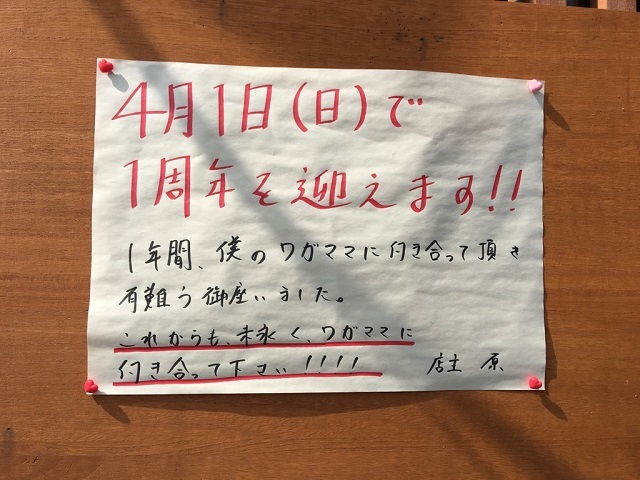 4月1日(日)で
1周年を迎えます!!
1年間、僕のワガママに付き合って頂き
有難う御座いました。
これからも、末永く、ワガママに
付き合って下さい!!!!
店主 原